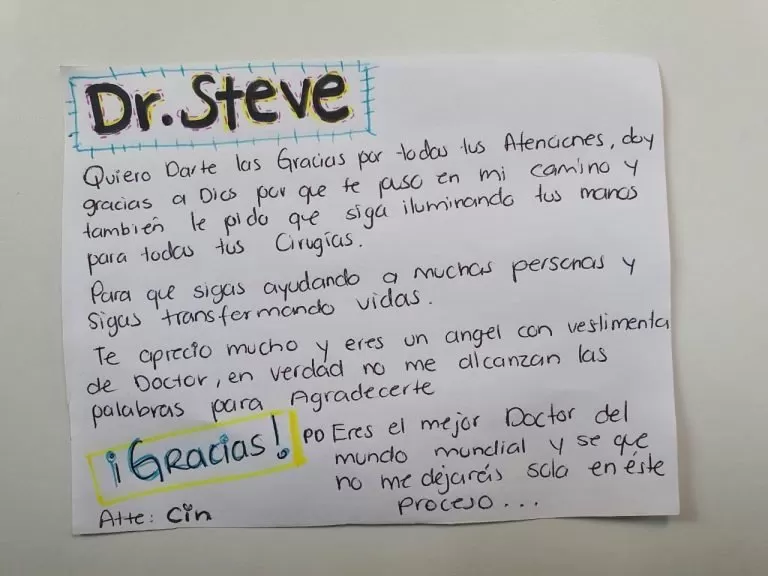 Dr. Steve
Quiero Darte las Gracias por todas tus Atenciones, doy
gracias a Dios por que te puso en mi camino y
también le pido que siga iluminando tus manos
para todas tus Cirugías.
Para que sigas ayudando a muchas personas y
Sigas transformando vidas.
Te aprecio mucho y eres un angel con vestimenta
de Doctor, en verdad no me alcanzan las
palabras para Agradecerte
¡Gracias!
PD Eres el mejor Doctor del
mundo mundial y se que
no me dejarás sola en éste
proceso...
Atte: Cin